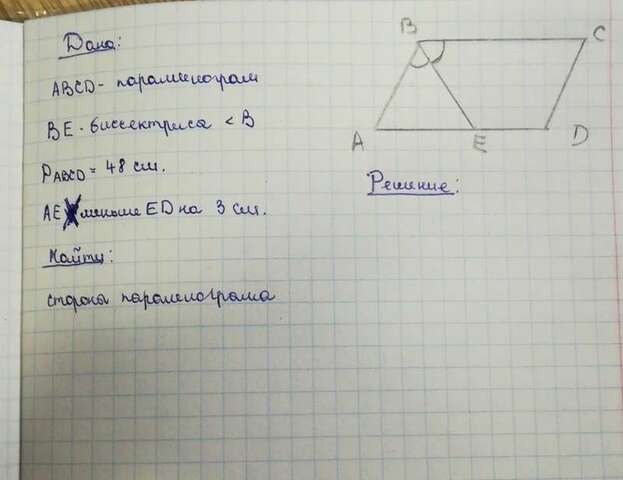 Дано:
ABCD - параллелограм
BE - биссектриса < B
PABCD = 48 см.
AE меньше ED на 3 см.
Найти:
стороны параллелограма
B
C
A
E
D
Решение: